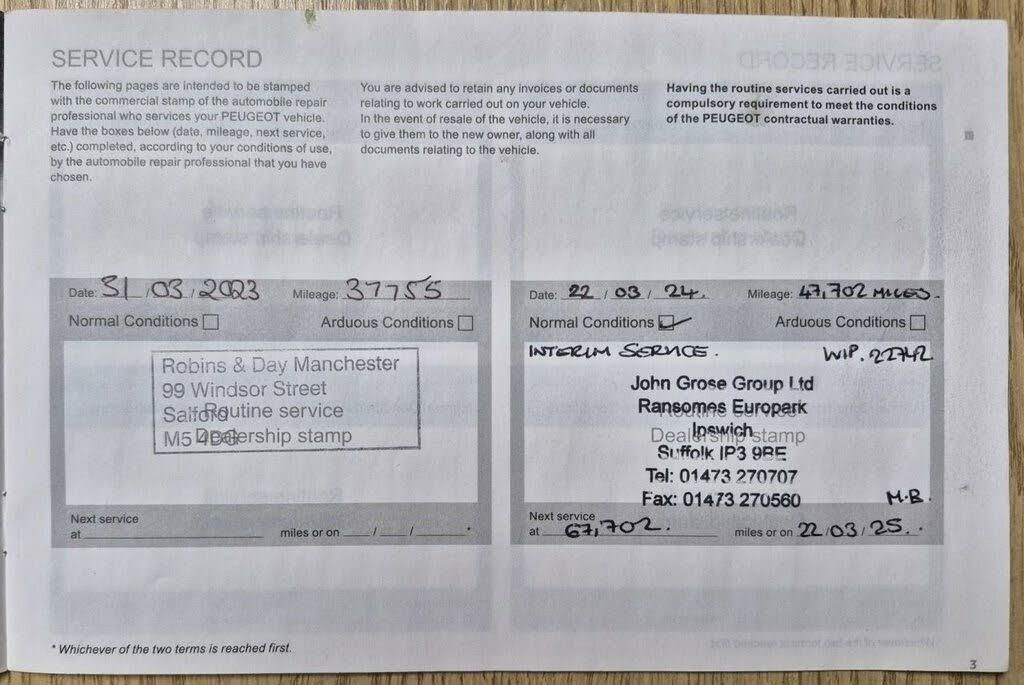 SERVICE RECORD
The following pages are intended to be stamped
with the commercial stamp of the automobile repair
professional who services your PEUGEOT vehicle.
Have the boxes below (date, mileage, next service,
etc.) completed, according to your conditions of use,
by the automobile repair professional that you have
chosen.
You are advised to retain any invoices or documents
relating to work carried out on your vehicle.
In the event of resale of the vehicle, it is necessary
to give them to the new owner, along with all
documents relating to the vehicle.
Having the routine services carried out is a
compulsory requirement to meet the conditions
of the PEUGEOT contractual warranties.
Date: 31/03/2023 Mileage: 37755
Normal Conditions Arduous Conditions
Robins & Day Manchester
99 Windsor Street
Salford
M5 4DG
Routine service
Dealership stamp
Next service
at miles or on / / *
Date: 22/03/24. Mileage: 47,702 MILES.
Normal Conditions Arduous Conditions
INTERIM SERVICE. WIP.
John Grose Group Ltd
Ransomes Europark
Ipswich
Suffolk IP3 9BE
Tel: 01473 270707
Fax: 01473 270560
Routine service
Dealership stamp
M.B.
Next service
at 67,702. miles or on 22/03/25.
* Whichever of the two terms is reached first.
3